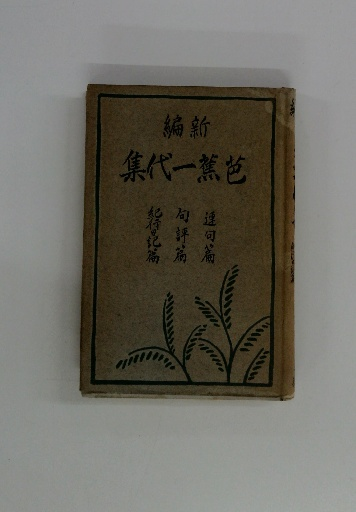 新編
芭蕉一代集
連句篇
句評篇
紀行日記篇